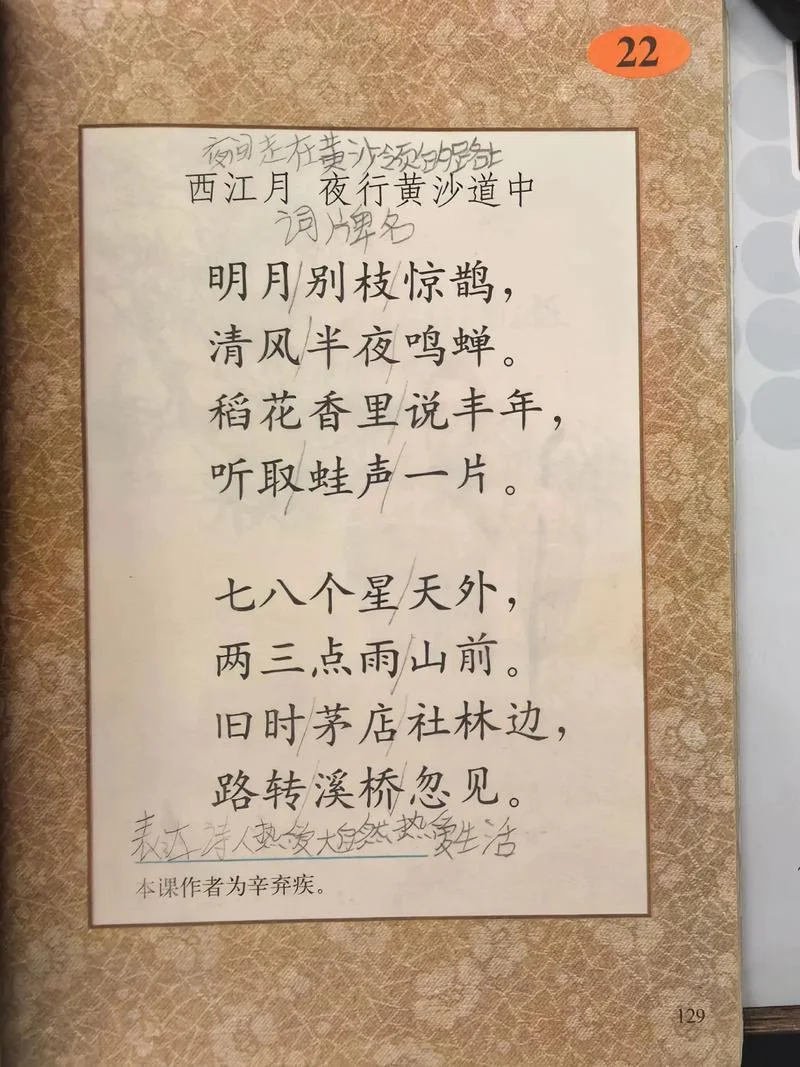 22
夜间走在黄沙领的路上
西江月 夜行黄沙道中
词牌名
明月/别枝/惊鹊，
清风/半夜/鸣蝉。
稻花香里/说丰年，
听取/蛙声/一片。
七八个星/天外，
两三点雨/山前。
旧时/茅店/社林边，
路转/溪桥/忽见。
表达诗人热爱大自然热爱生活
本课作者为辛弃疾。
129